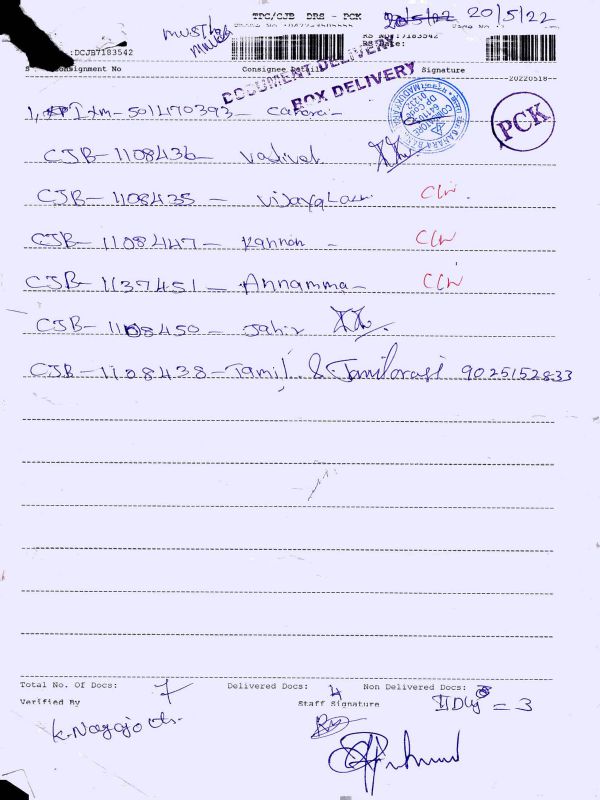 TPC/CJB DRS - PCK 20/5/22
:DCJB7183542 RS No :7183542
Consignment No Consignee Details Signature
DOCUMENT DELIVERY
BOX DELIVERY
20220518-
PCK
CJB-1108436- Vadivel
CJB-1108435- CLW
CJB-1108447- Kannan - CLW
CJB-1137451- Annamma- CLW
CJB-1108450- Jahir
CJB-1108438-Tamil & Tamilarasi 9025152833
Total No. Of Docs: 7 Delivered Docs: 4 Non Delivered Docs:
Verified By Staff Signature = 3